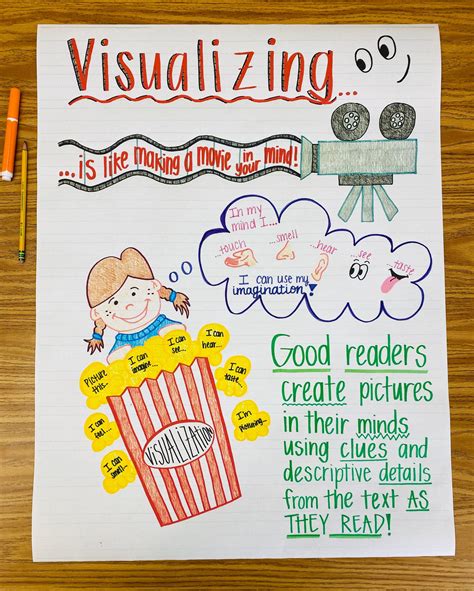 Visualizing...
...is like making a movie in your mind!
In my
mind I...
...touch
...smell
...hear
...see
...taste
I can use my
imagination!
Picture
this...
I can
imagine...
I can
see...
I can
hear...
I can
taste...
I'm
picturing...
I can
feel...
I can
smell...
VISUALIZATION
Good readers
create pictures
in their minds
using clues and
descriptive details
from the text AS
THEY READ!